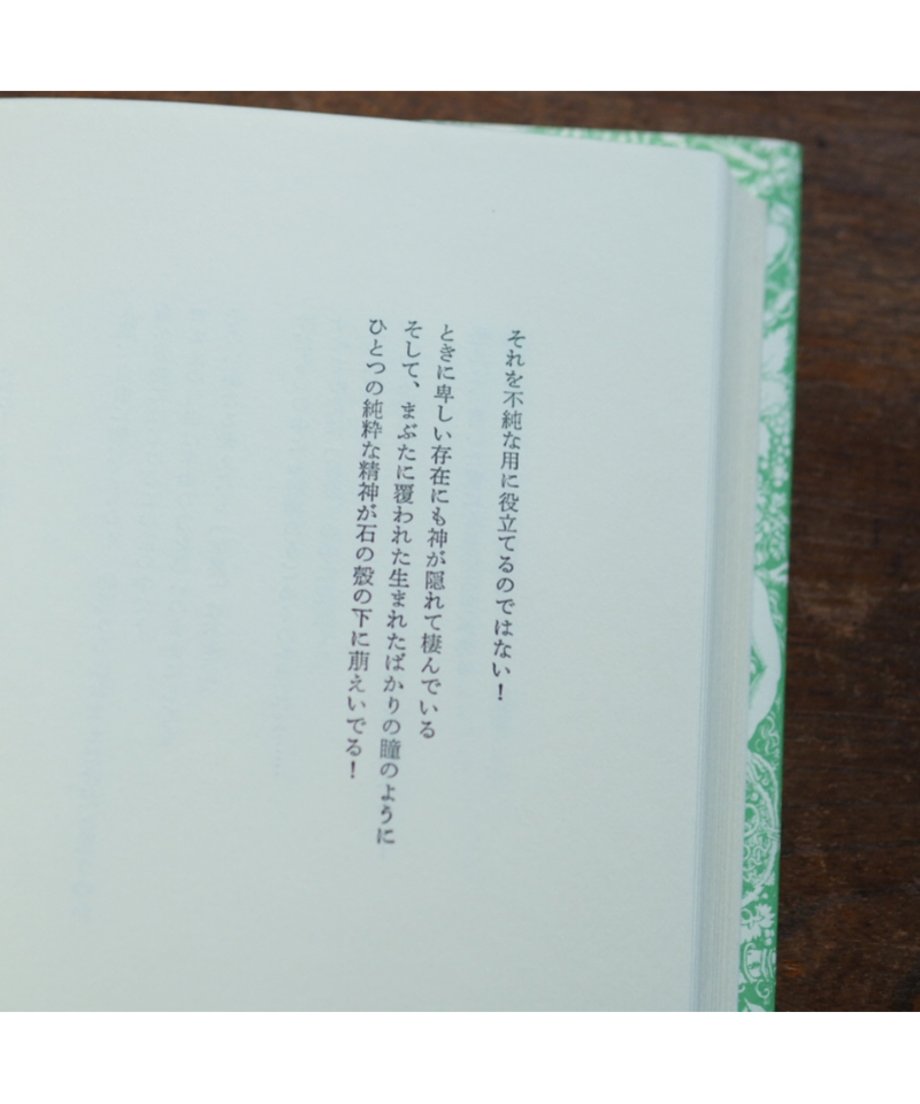 それを不純な用に役立てるのではない！
ときに卑しい存在にも神が隠れて棲んでいる
そして、まぶたに覆われた生まれたばかりの瞳のように
ひとつの純粋な精神が石の殻の下に萠えいでる！